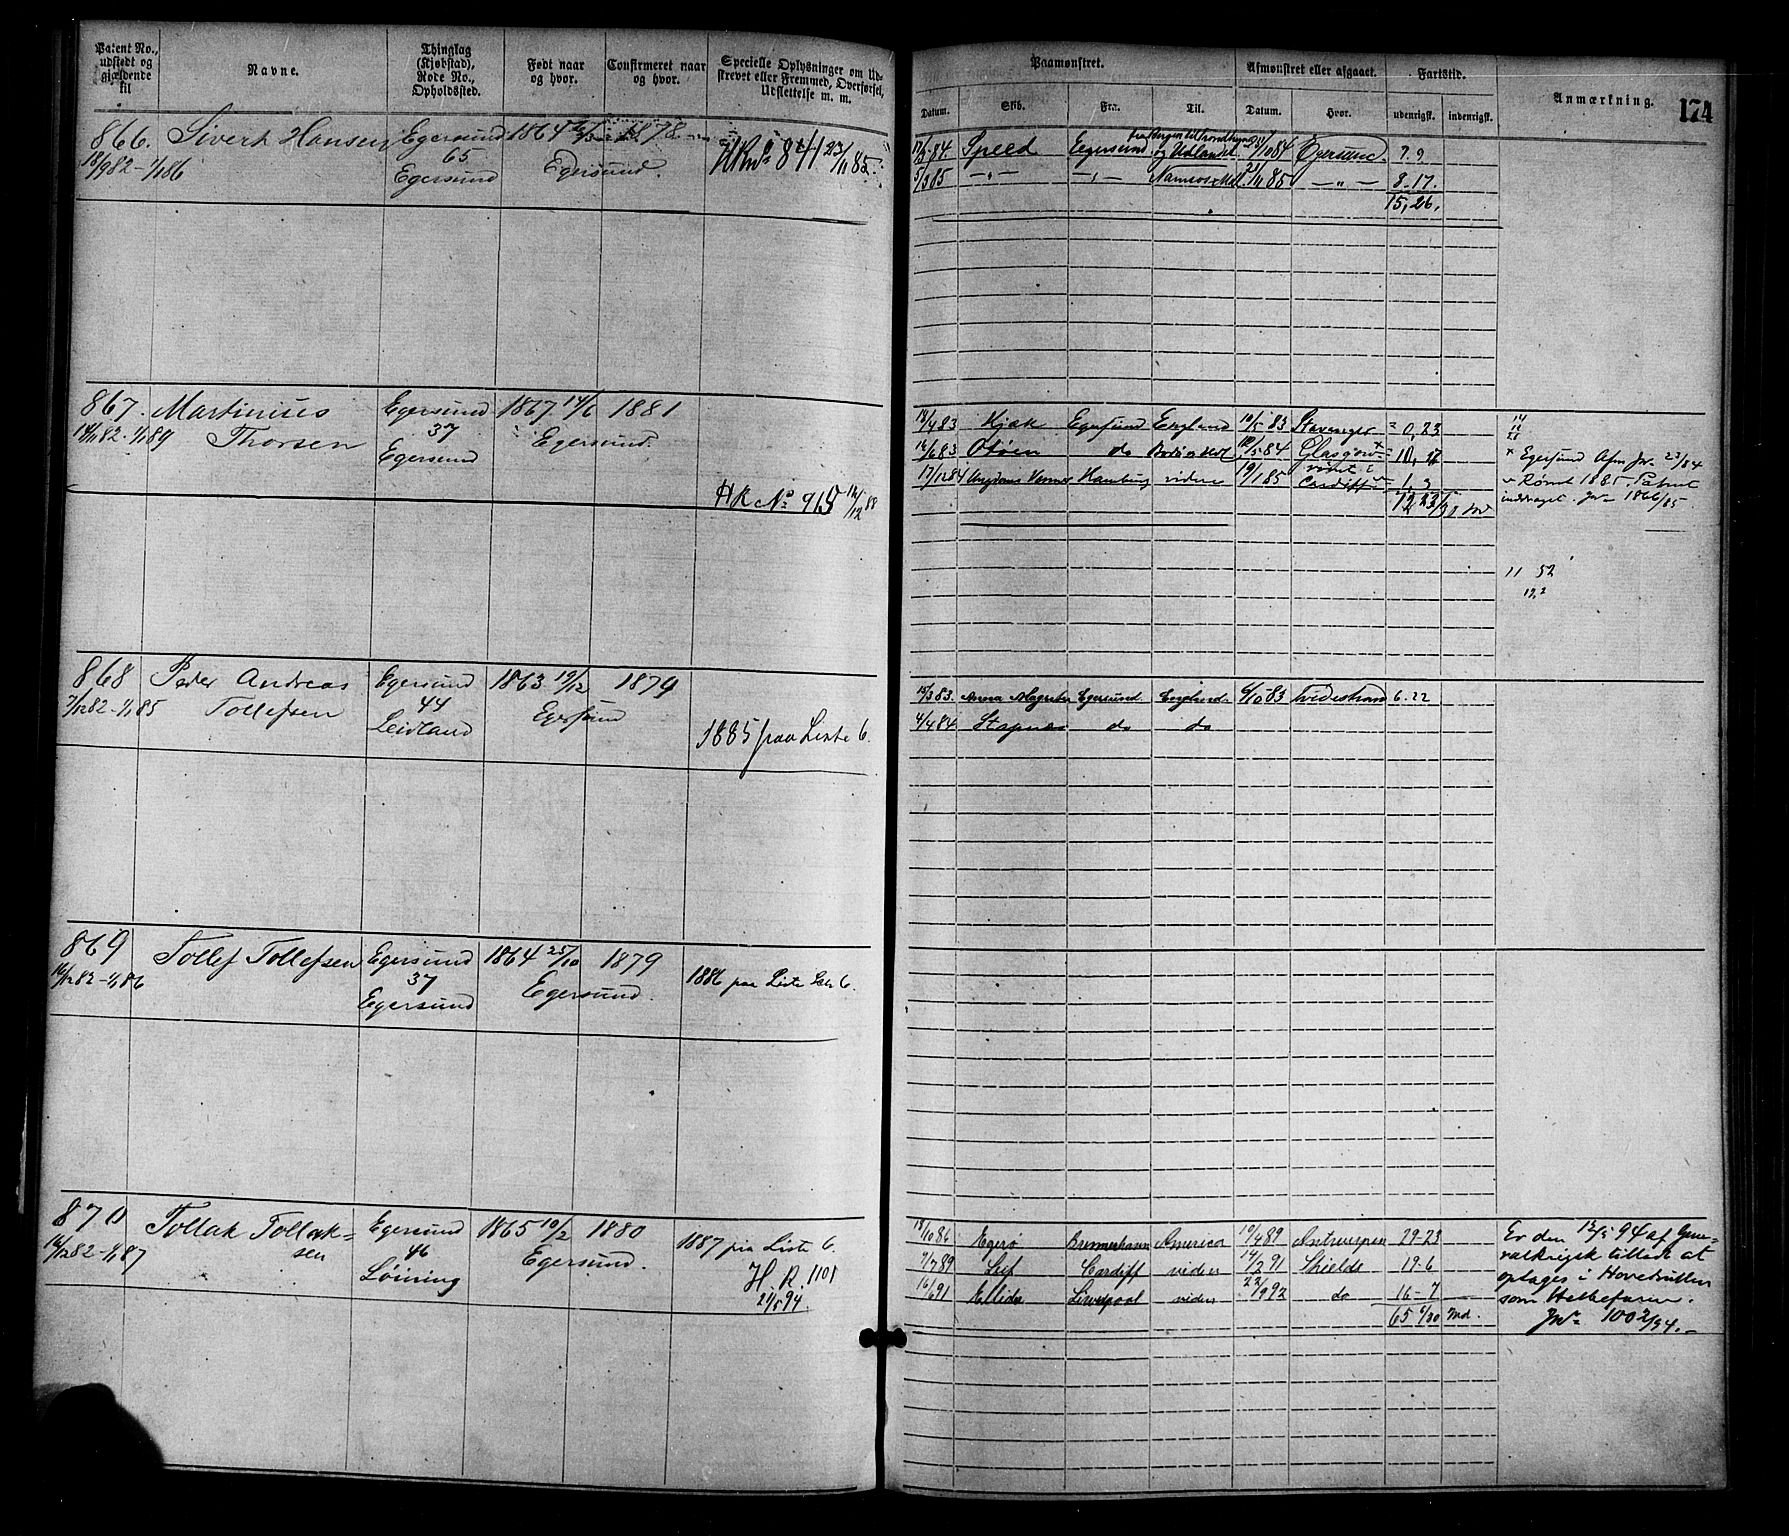 Patent No., udstedt og gjældende til
Navne.
Thinglag (Kjøbstad), Rode No., Opholdssted.
Født naar og hvor.
Confirmeret naar og hvor.
Specielle Oplysninger om Udskrevet eller Fremmed, Overførsel, Udslettelse m. m.
Paamønstret.
Datum. Skib. Fra. Til.
Afmønstret eller afgaaet.
Datum. Hvor.
Fartstid.
udenrigsk. indenrigsk.
Anmærkning.
174
866. Sivert Hansen Egersund 1864 1878
18/9 82 - 1/1 86 65
Egersund Egersund. HR No 841 23/11 85.
17/3 84. Speed Egersund. fra Bergen til Trondhjem og Udlandet 84 Egersund. 7. 9
5/3 85 -"- -"- 85 -"- 8-17.
15, 26,
867. Martinius Egersund 1867 14/6 1881
14/11 82 - 1/1 89 Thorsen 37
Egersund Egersund.
HR No 915 12/12 88
18/4 83 Kjak Egersund England 10/5 83 Stavanger 0,23
16/6 83 do 84 Glasgow 10,
17/12 84 Hamburg videre 19/1 85 rømt i Cardiff 1, 3
× Egersund Afm Jno 23/84
Rømt 1885. Patent
inddraget. Jno 1866/85
11 52
868 Peder Andreas Egersund 1863 19/12 1879
7/12 82 - 1/1 85 Tollefsen 44
Leidland Egersund
1885 paa Liste 6.
15/3 83. Anna Magrete Egersund England 6/10 83 Tvedestrand 6. 22
4/4 84 Stapnæs do do
869 Tollef Tollefsen Egersund 1864 25/10 1879
16/12 82 - 1/1 86 37
Egersund Egersund.
1886 paa Liste Lit 6.
870 Tollak Tollak= Egersund 1865 10/2 1880
16/12 82 - 1/1 87 sen 46
Løining Egersund.
1887 paa Liste 6.
H. R. 1101
21/5 94.
18/10 86 Egerø Bremerhaven America 10/4 89 Antwerpen 29-23
9/7 89 Leif Cardiff videre 14/2 91 Shields 19-6
16/6 91 Ellida Liverpool videre 22/9 92 do 16-7
65 6/30 Md.
Er den 12/5 94 af Gene=
ralkrigsk tilladt at
optages i Hovedrullen
som Helbefaren.
Jno 1002/94.-